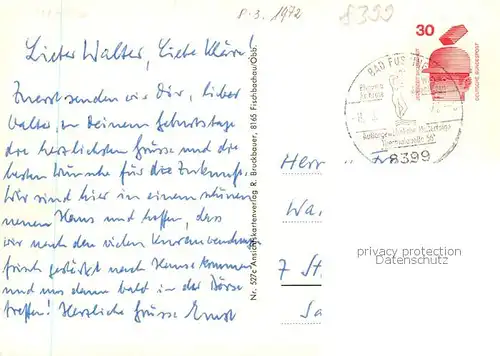 8.3.1972
8399
Lieber Walter, liebe Kläre!
Zuerst senden wir Dir, lieber
Walter, zu Deinem Geburtstage
die herzlichsten Grüsse und die
besten Wünsche für die Zukunft.
Wir sind hier in einem schönen
neuen Haus und hoffen, dass
wir nach den vielen Kuranwendungen
frisch gestärkt nach Hause kommen
und uns dann bald in der Börse
treffen! Herzliche Grüsse Ernst
Nr. 527c Ansichtskartenverlag R. Bruckbauer, 8165 Fischbachau/Obb.
30
DEUTSCHE BUNDESPOST
BAD FÜSSING
8399
Herr
Wa
7 St
privacy protection
Datenschutz